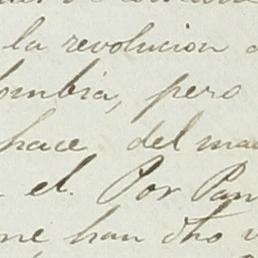 la revolucion
ombia, pero
hace del ma
el. Por Pan
me han dho